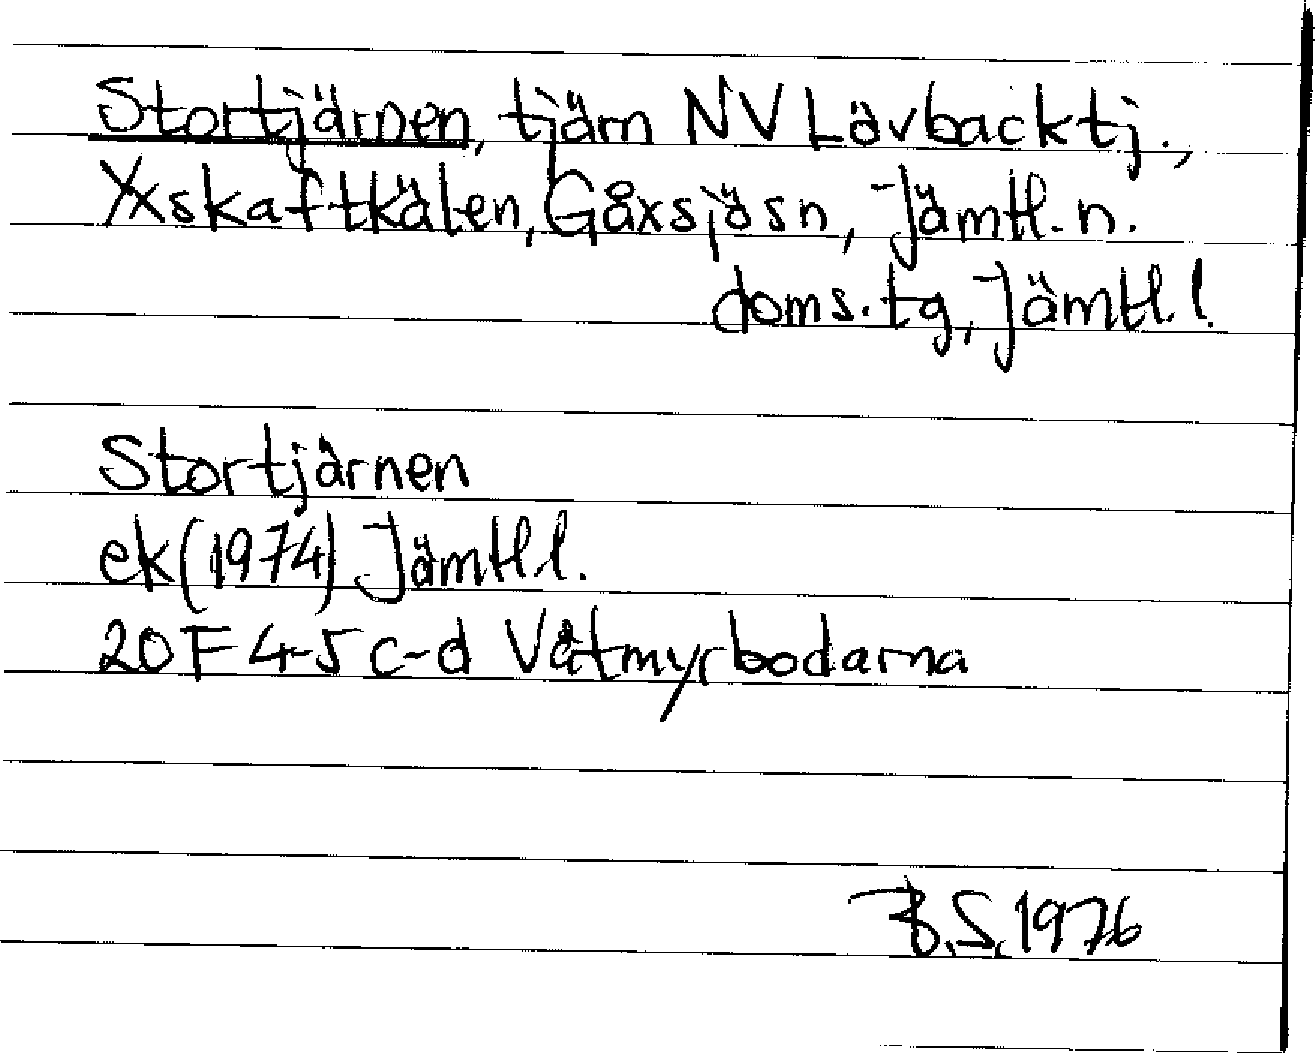 Stortjärnen, tjärn NV Lavbacktj.,
Yxskaftkälen, Gåxsjösn, Jämtl. n.
doms. tg, Jämtl. l.
Stortjärnen
ek (1974) Jämtl l.
20 F 4-5 c-d Våtmyrbodarna
B.S. 1976